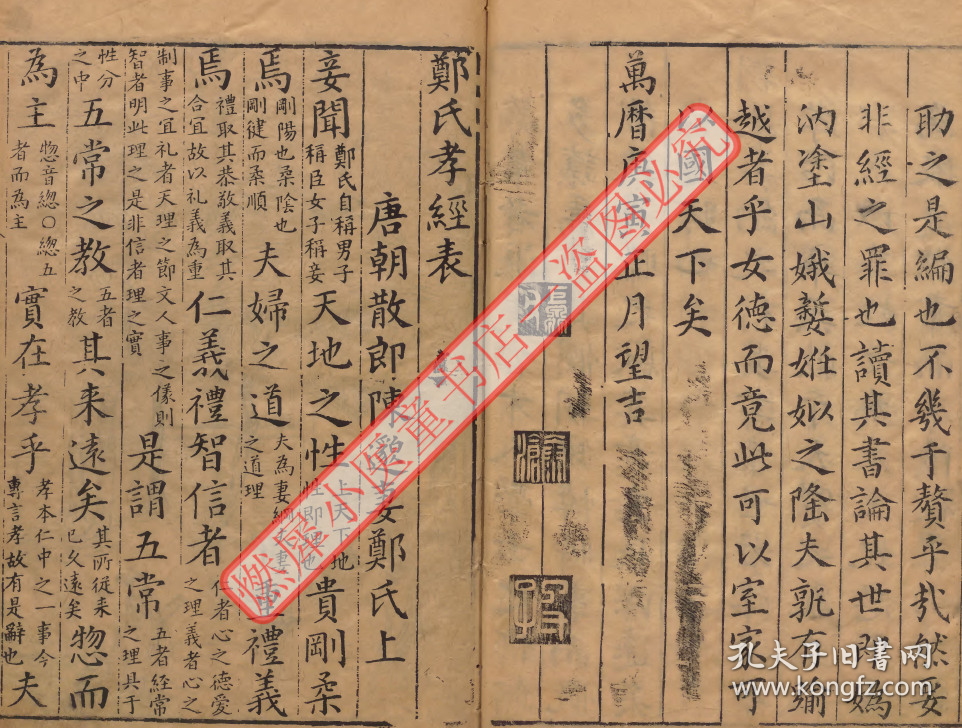 助之是編也不幾于贅乎哉然安
非經之罪也讀其書論其世
汭塗山娥嫠姙姒之隆夫孰有踰
越者乎女德而竟此可以室家可
國天下矣
萬曆庚寅正月望吉
鄭氏孝經表
唐朝散郎陳邈妻鄭氏上
妾聞鄭氏自稱男子稱臣女子稱妾天地之性上天下地性即理也貴剛柔
焉剛陽也柔陰也剛健而柔順夫婦之道夫為妻綱之道理重禮義
焉禮取其恭敬義取其合宜故以礼義為重仁義禮智信者仁者心之德愛之理義者心之
制事之宜礼者天理之節文人事之儀則智者明此理之是非信者理之實是謂五常五者經常之理具于
性分之中五常之教五者之教其来遠矣其所從来已久遠矣惣而
為主惣音總〇總五者而為主實在孝乎孝本仁中之一事今專言孝故有是辭也夫
燃犀小侯童书店之盗图必究
孔夫子旧书网
www.kongfz.com